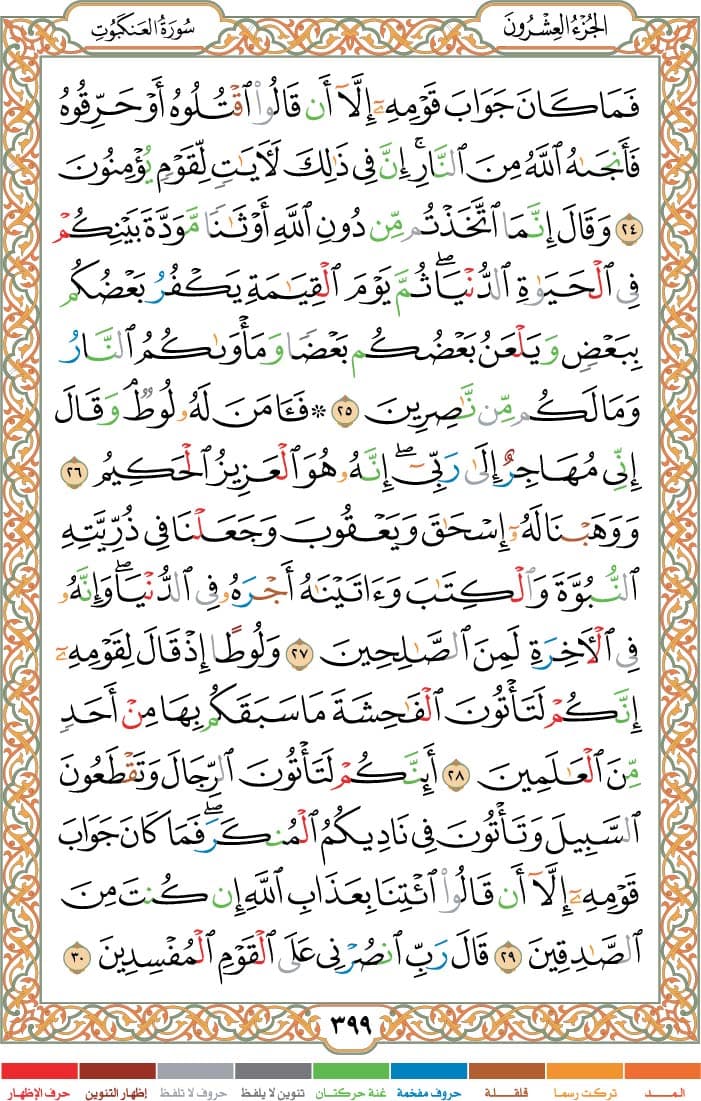 الجُزْءُ العِشْرُونَ
سُورَةُ العَنكَبُوتِ
فَمَا كَانَ جَوَابَ قَوْمِهِۦٓ إِلَّآ أَن قَالُوا۟ ٱقْتُلُوهُ أَوْ حَرِّقُوهُ
فَأَنجَىٰهُ ٱللَّهُ مِنَ ٱلنَّارِ ۚ إِنَّ فِى ذَٰلِكَ لَءَايَٰتٍ لِّقَوْمٍ يُؤْمِنُونَ
٢٤ وَقَالَ إِنَّمَا ٱتَّخَذْتُم مِّن دُونِ ٱللَّهِ أَوْثَٰنًا مَّوَدَّةَ بَيْنِكُمْ
فِى ٱلْحَيَوٰةِ ٱلدُّنْيَا ۖ ثُمَّ يَوْمَ ٱلْقِيَٰمَةِ يَكْفُرُ بَعْضُكُم
بِبَعْضٍ وَيَلْعَنُ بَعْضُكُم بَعْضًا وَمَأْوَىٰكُمُ ٱلنَّارُ
وَمَا لَكُم مِّن نَّٰصِرِينَ ٢٥ ۞ فَـَٔامَنَ لَهُۥ لُوطٌ ۘ وَقَالَ
إِنِّى مُهَاجِرٌ إِلَىٰ رَبِّىٓ ۖ إِنَّهُۥ هُوَ ٱلْعَزِيزُ ٱلْحَكِيمُ ٢٦
وَوَهَبْنَا لَهُۥٓ إِسْحَٰقَ وَيَعْقُوبَ وَجَعَلْنَا فِى ذُرِّيَّتِهِ
ٱلنُّبُوَّةَ وَٱلْكِتَٰبَ وَءَاتَيْنَٰهُ أَجْرَهُۥ فِى ٱلدُّنْيَا ۖ وَإِنَّهُۥ
فِى ٱلْءَاخِرَةِ لَمِنَ ٱلصَّٰلِحِينَ ٢٧ وَلُوطًا إِذْ قَالَ لِقَوْمِهِۦٓ
إِنَّكُمْ لَتَأْتُونَ ٱلْفَٰحِشَةَ مَا سَبَقَكُم بِهَا مِنْ أَحَدٍ
مِّنَ ٱلْعَٰلَمِينَ ٢٨ أَئِنَّكُمْ لَتَأْتُونَ ٱلرِّجَالَ وَتَقْطَعُونَ
ٱلسَّبِيلَ وَتَأْتُونَ فِى نَادِيكُمُ ٱلْمُنكَرَ ۖ فَمَا كَانَ جَوَابَ
قَوْمِهِۦٓ إِلَّآ أَن قَالُوا۟ ٱئْتِنَا بِعَذَابِ ٱللَّهِ إِن كُنتَ مِنَ
ٱلصَّٰدِقِينَ ٢٩ قَالَ رَبِّ ٱنصُرْنِى عَلَى ٱلْقَوْمِ ٱلْمُفْسِدِينَ ٣٠
٣٩٩
المــــد تركت رسما قلقـــلة حروف مفخمة غنة حركتان تنوين لا يلفظ حروف لا تلفظ إظهار التنوين حرف الإظهار